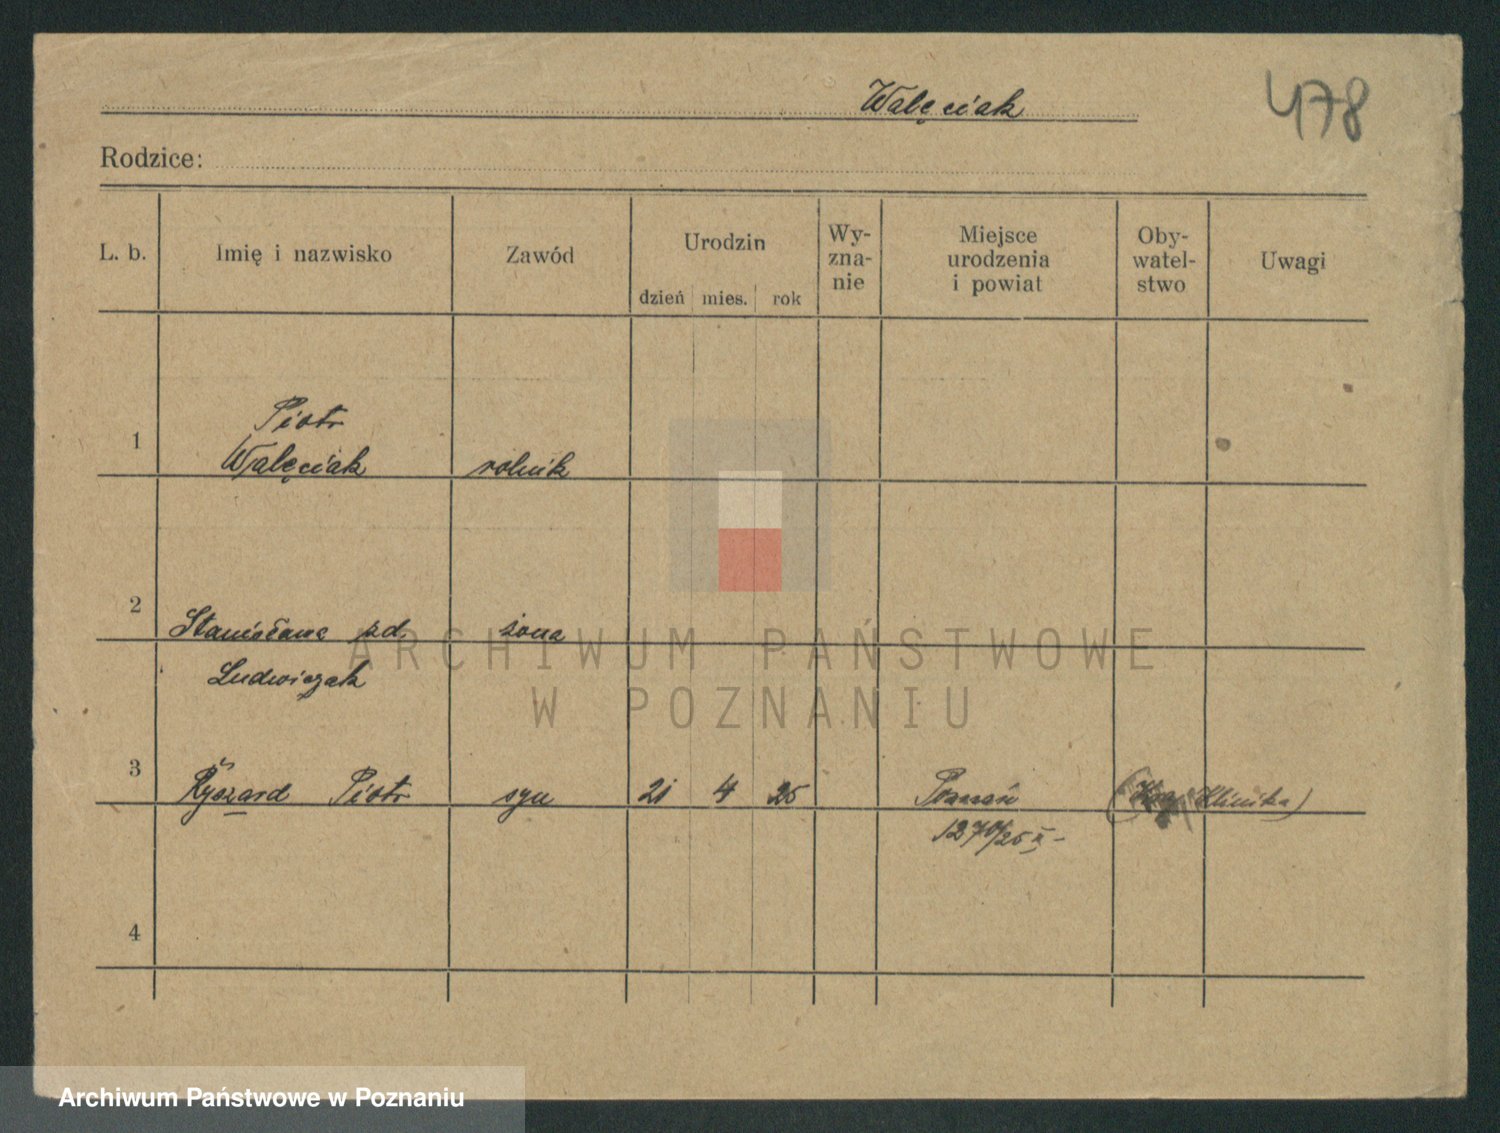 Walęciak
478
Rodzice:
L. b.
Imię i nazwisko
Zawód
Urodzin
dzień mies. rok
Wy-
zna-
nie
Miejsce
urodzenia
i powiat
Oby-
watel-
stwo
Uwagi
1
Piotr
Walęciak
rolnik
2
Stanisława zd.
żona
Ludwiczak
3
Ryszard Piotr
syn
21 4 25
Poznań
Klinika)
1270/25
4
ARCHIWUM PAŃSTWOWE
W POZNANIU
Archiwum Państwowe w Poznaniu